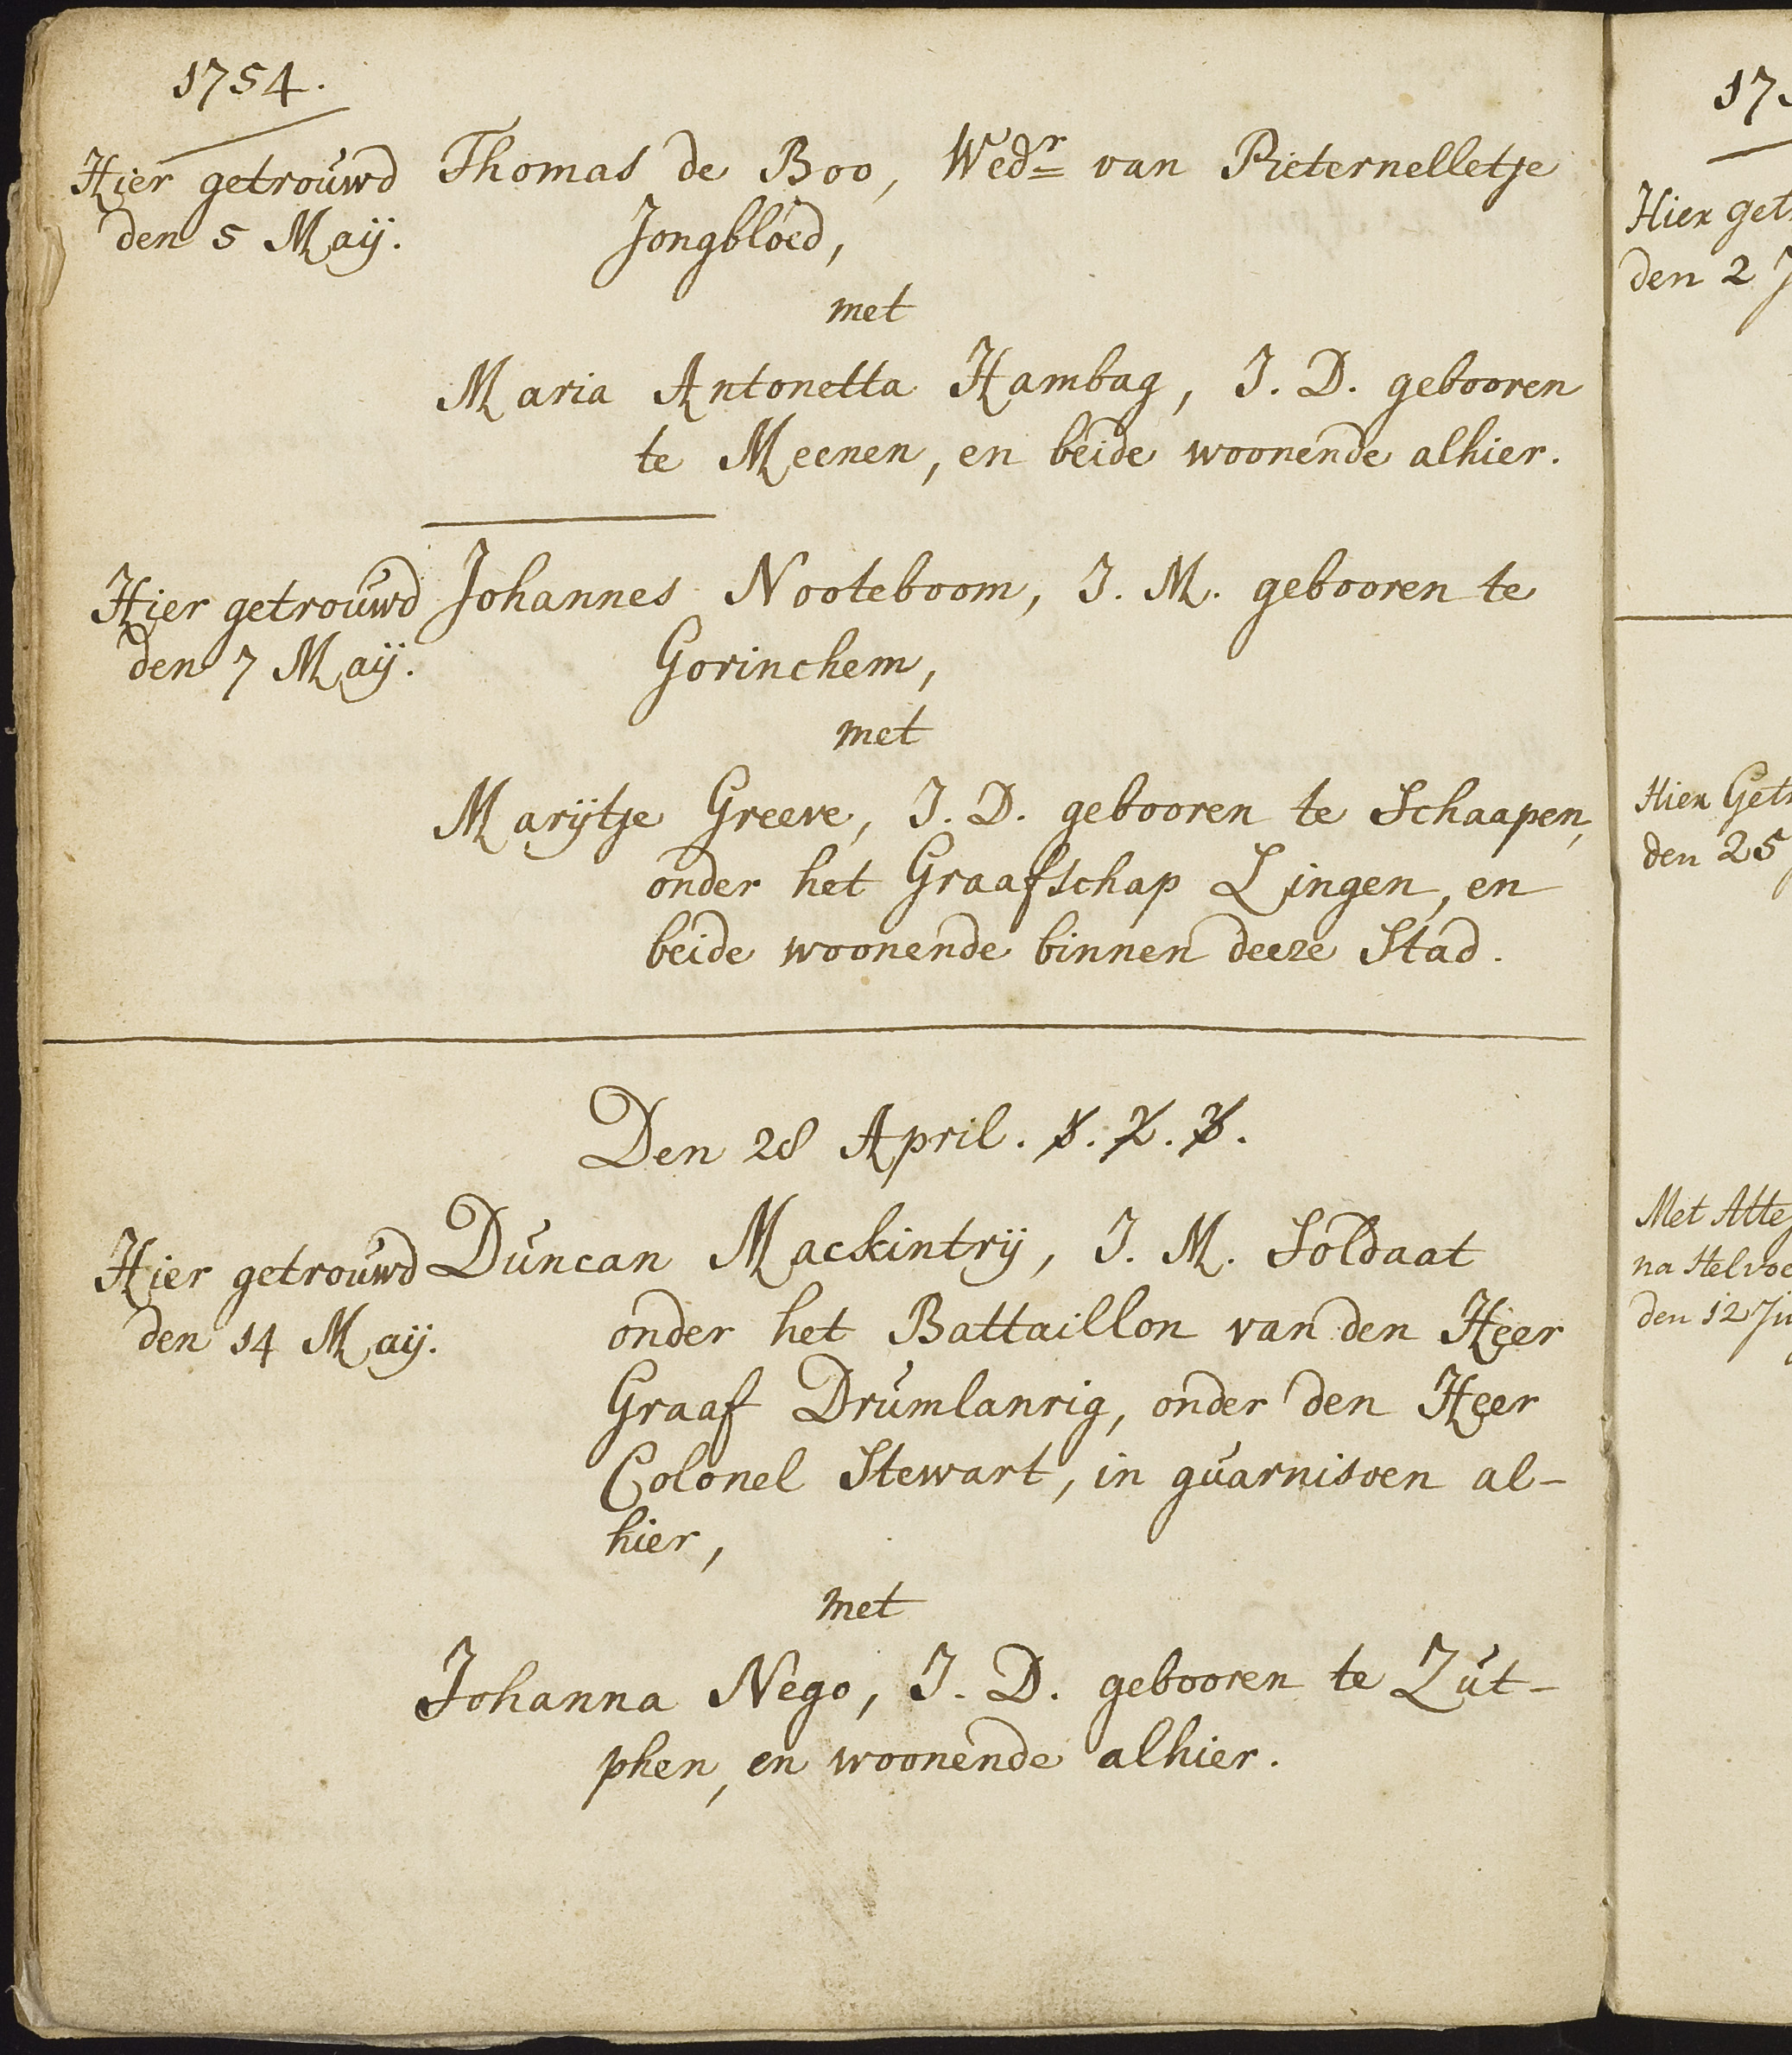 1754.
Hier getrouwd
den 5 Maÿ.
Thomas de Boo, Wedr van Pieternelletje
Jongbloed,
met
Maria Antonetta Hambag, J. D. gebooren
te Meenen, en beide woonende alhier.
Hier getrouwd
den 7 Maÿ.
Johannes Nooteboom, J. M. gebooren te
Gorinchem,
met
Marÿtje Greeve, J. D. gebooren te Schaapen,
onder het Graafschap Lingen, en
beide woonende binnen deeze Stad.
Den 28 April. 1. 2. 3.
Hier getrouwd
den 14 Maÿ.
Duncan Mackintrÿ, J. M. Soldaat
onder het Battaillon van den Heer
Graaf Drumlanrig, onder den Heer
Colonel Stewart, in guarnisoen al-
hier,
met
Johanna Nego, J. D. gebooren te Zut-
phen, en woonende alhier.
17
Hier get
den 2 J
Hier Get
den 25
Met Atte
na Helvoe
den 12 Ju